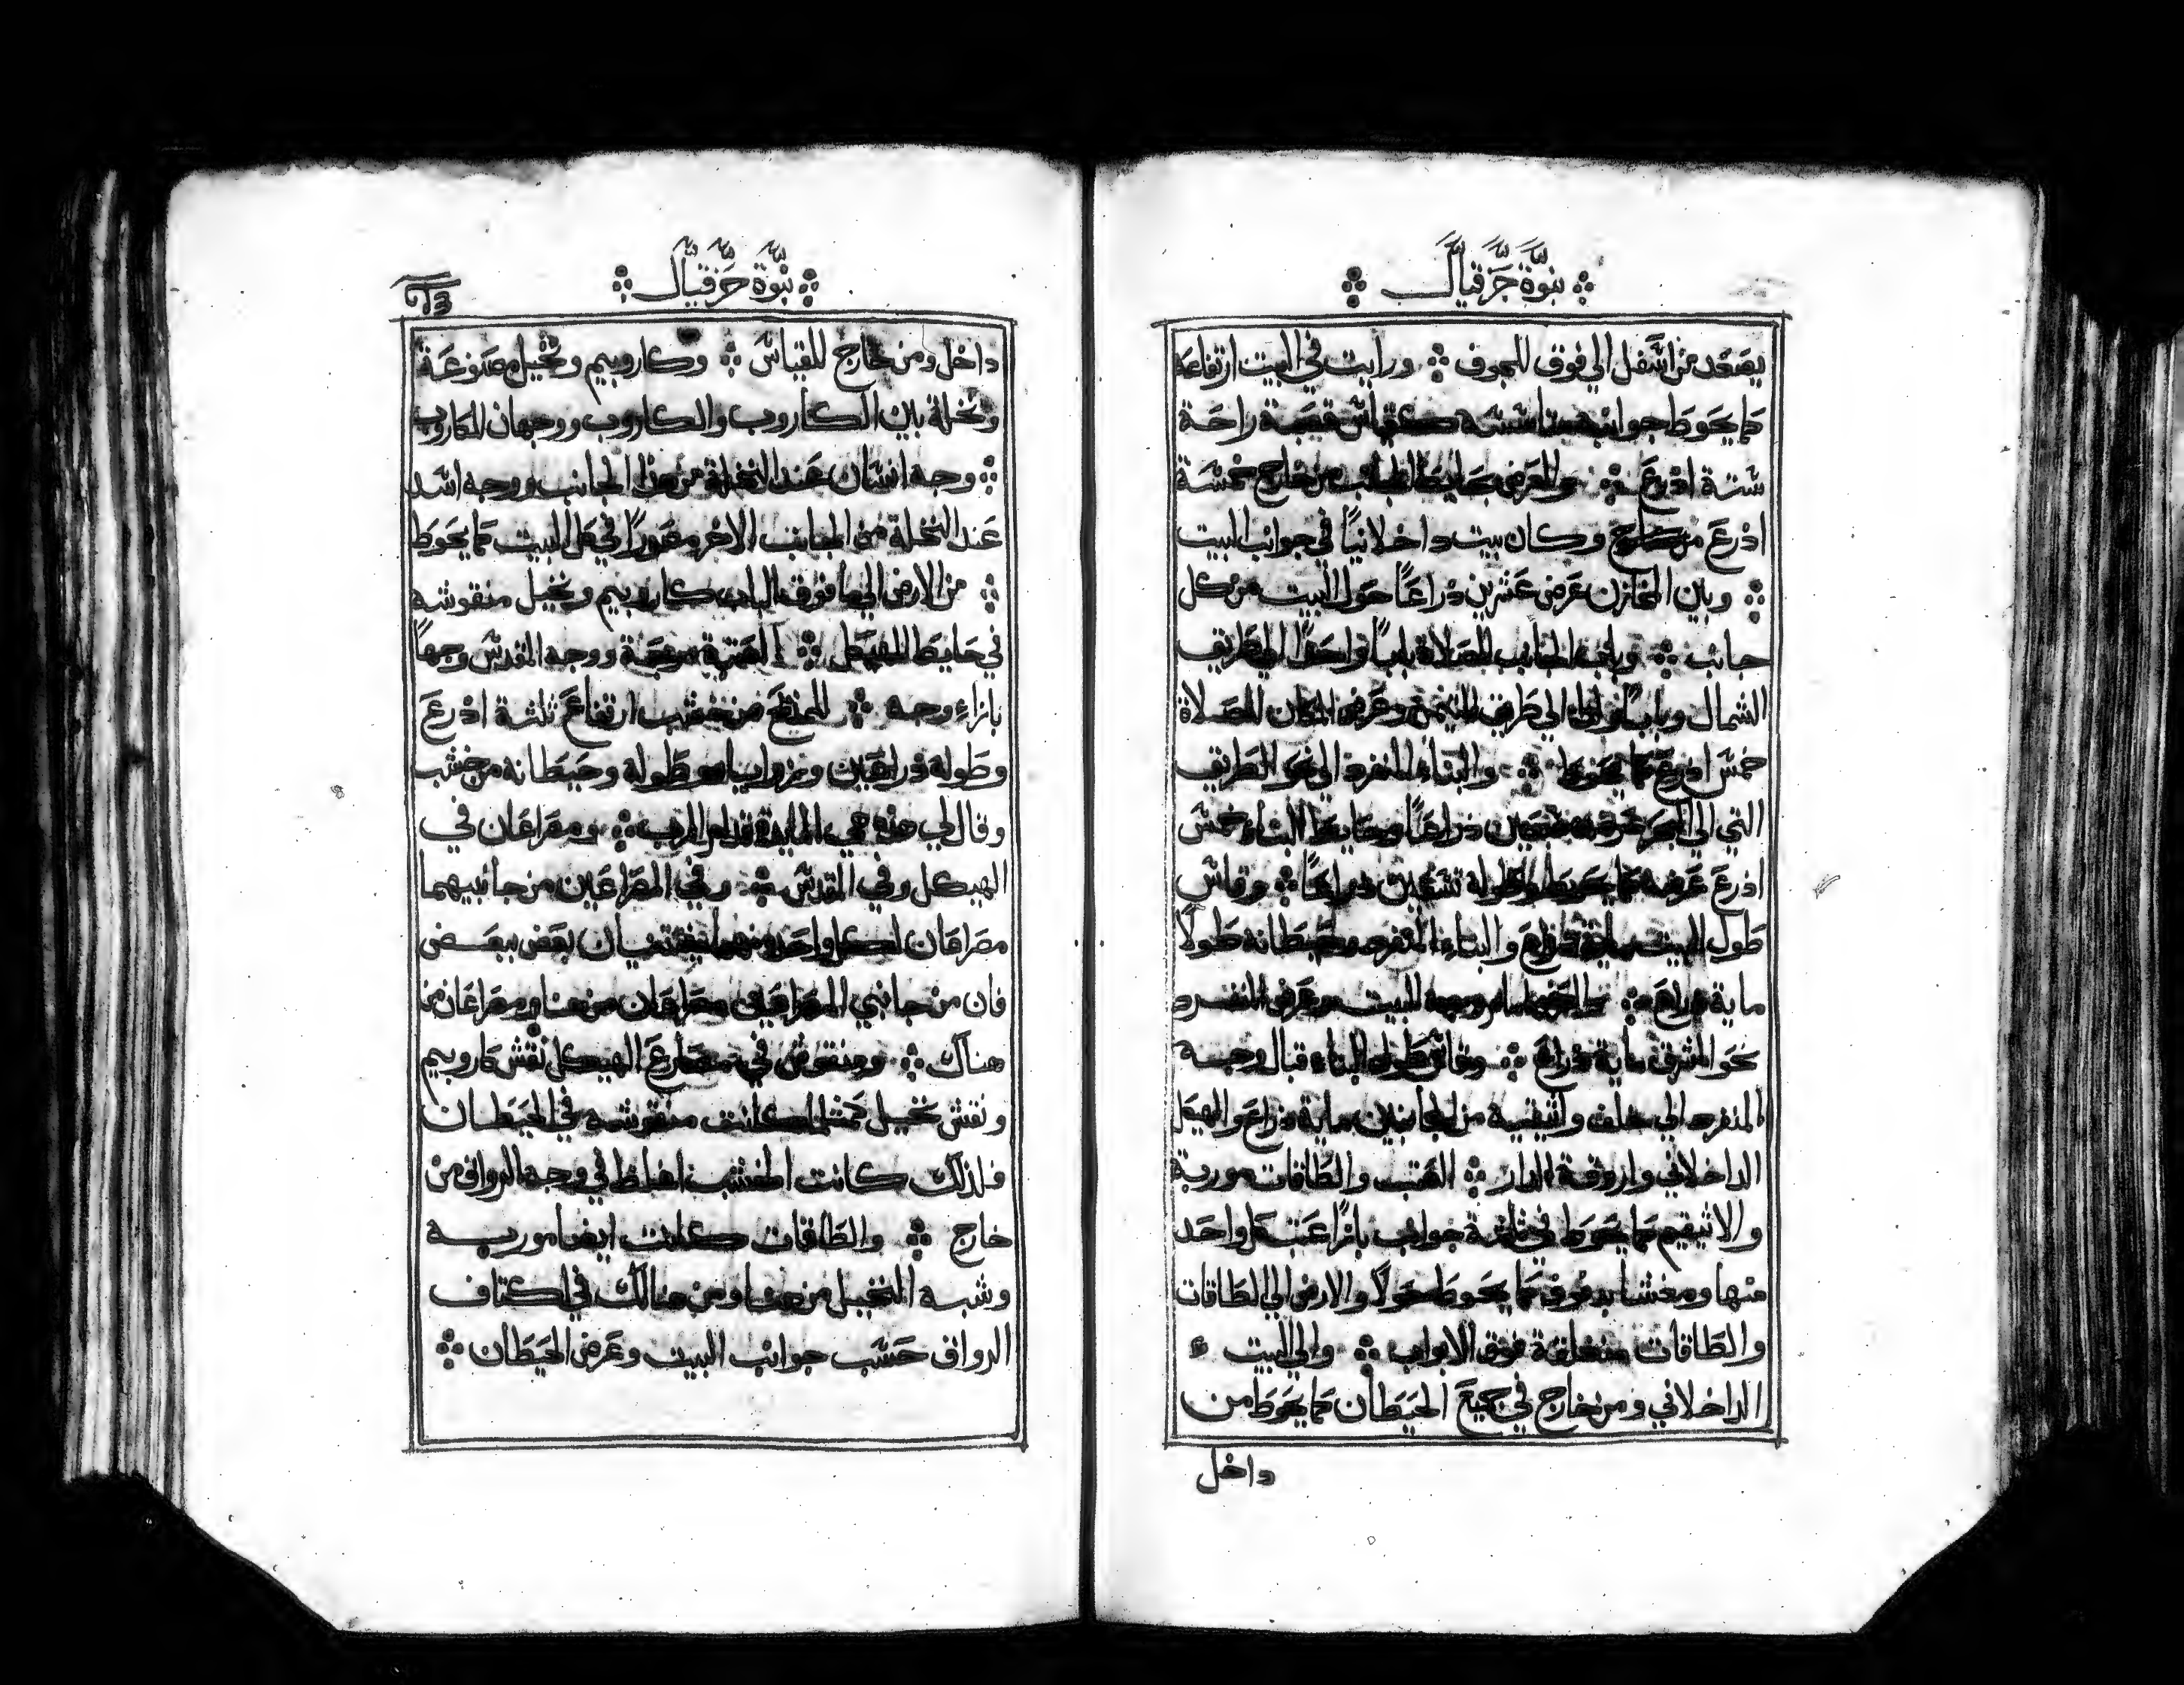 نبوة حزقيال
يصعد من اسفل الي فوق للجوف ورايت في البيت ارتفاعه
كما يحوط جوانب قصبة راحة
ستة اذرع والعرض حايط الجانب من خارج خمسة
اذرع من خارج وكان بيت داخلانيًا في جوانب البيت
وبين المخازن عرض عشرين ذراعًا حول البيت من كل
جانب وباب الجانب للصلاة بابًا واحدًا الي طريق
الشمال وبابًا واحدًا الي طريق التيمن وعرض المكان للصلاة
خمس اذرع كما يحوط والبناء المنفرد الي نحو الطريق
التي الي البحر عرضه سبعين ذراعًا وحايط البناء خمس
اذرع عرضه كما يحوط وطوله تسعين ذراعًا وقاس
طول البيت ماية ذراع والبناء المنفرد وحيطانه طولًا
ماية ذراع والعرض امام وجه البيت وعرض المنفرد
نحو الشرق ماية ذراع وقاس طول البناء قبال وجه
المنفرد الي خلف من الجانبين ماية ذراع والهيكل
الداخلاني واروقة الدار العتب والطاقات موربة
كما يحوط في ثلثة جوانب بازا عتب كل واحد
منها ومغشا كما يحوط حولًا والارض الي الطاقات
والطاقات منغلقة فوق الابواب والي البيت
الداخلاني ومن خارج في جميع الحيطان كما يحوط من
داخل
نبوة حزقيال
داخل ومن خارج للقياس وكاروبيم ونخيل مصنوعة
ونخلة بين الكاروب والكاروب ووجهان للكاروب
وجه انسان عند النخلة من هذا الجانب ووجه اسد
عند النخلة من الجانب الاخر مصورًا في كل البيت كما يحوط
من الارض الي ما فوق الباب كاروبيم ونخيل منقوشه
في حايط الهيكل العتبة مربعة ووجه القدس وجهًا
بازاء وجه للمذبح من خشب ارتفاع ثلثة اذرع
وطوله ذراعين وزواياه وطوله وحيطانه من خشب
وقال لي هذه هي المايدة قدام الرب ومصراعان في
الهيكل وفي القدس وفي المصراعين من جانبيهما
مصراعان لكل واحد منهما بعض ببعض
فان من جانبي المصراعين مصراعان من هنا ومصراعان من
هناك ومنقوش في مصارع الهيكل نقش كاروبيم
ونقش نخيل كمثل كانت منقوشه في الحيطان
فلذلك كانت الخشب اغلظ في وجه الرواق من
خارج والطاقات كانت ايضا موربه
وشبه النخيل من هنا ومن هنالك في اكتاف
الرواق حسب جوانب البيت وعرض الحيطان